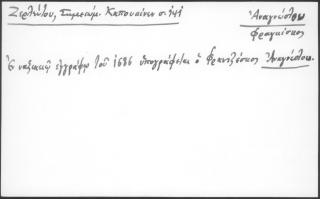 Ζερλέντου, Σημειώμ. Καπουσίνων σ. 141
Ἀναγνώστου
Φραγκίσκος
Ἐν ναξιακῷ ἐγγράφῳ τοῦ 1686 ὑπογράφεται ὁ Φραντζέσκος Ἀναγνώστου.